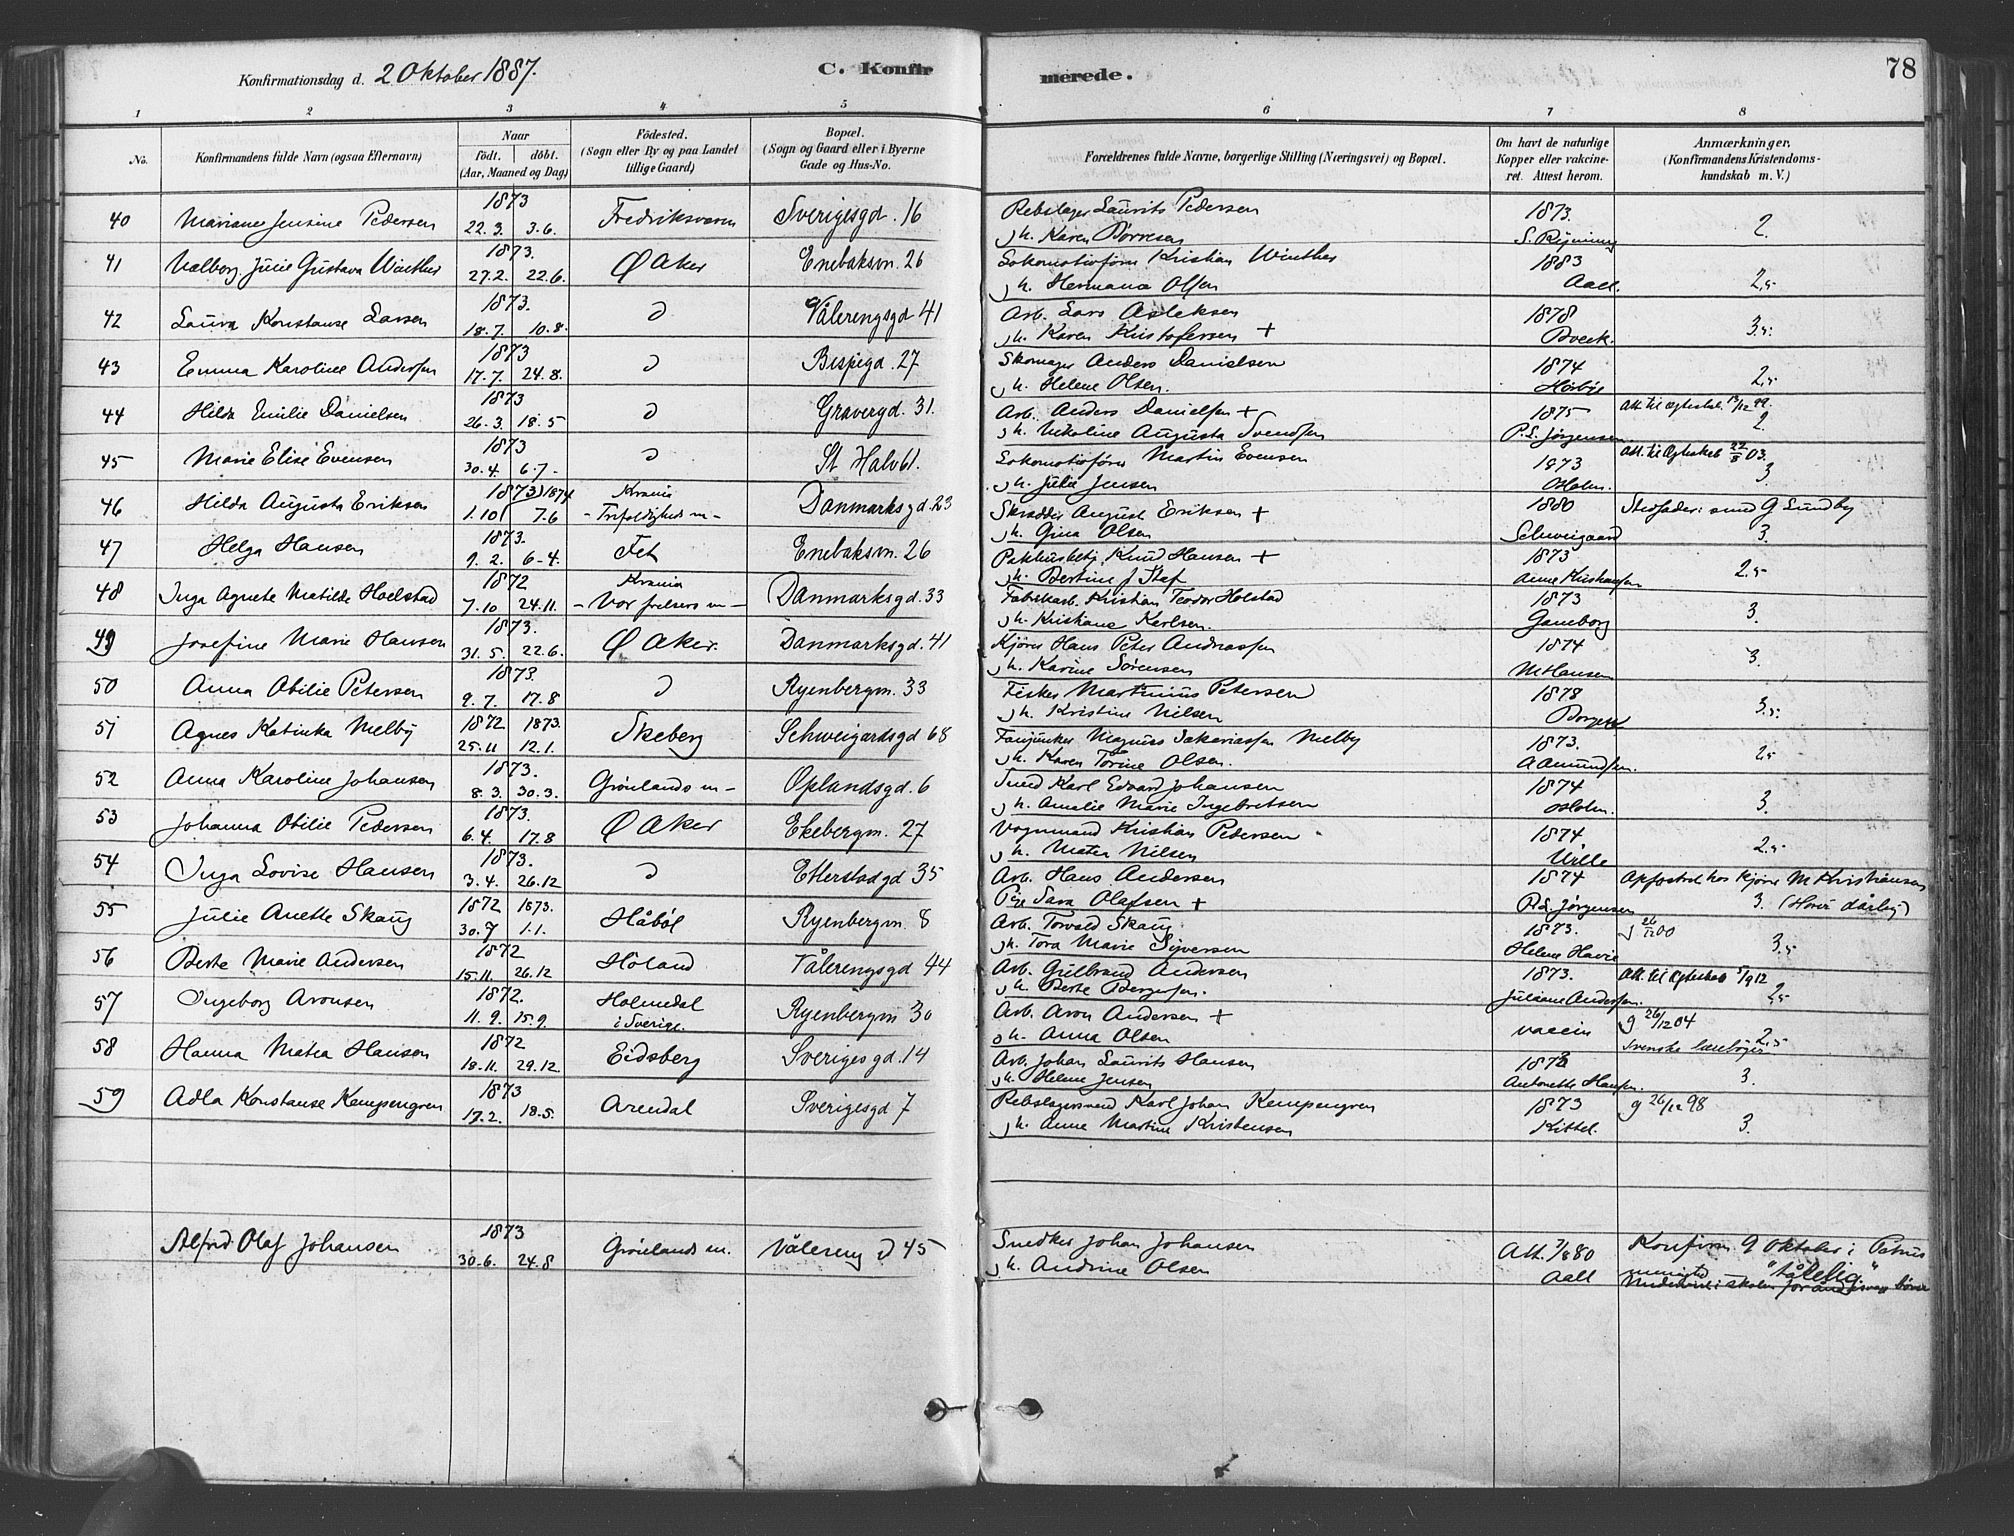 Konfirmationsdag d. 2 Oktober 1887.
C. Konfir
merede.
78
1 2 3 4 5 6 7 8
No.
Konfirmandens fulde Navn (ogsaa Efternavn)
Naar
født. døbt.
(Aar, Maaned og Dag)
Fødested.
(Sogn eller By og paa Landet
tillige Gaard)
Bopæl.
(Sogn og Gaard eller i Byerne
Gade og Hus-No.
Forældrenes fulde Navne, borgerlige Stilling (Næringsvei) og Bopæl.
Om havt de naturlige
Kopper eller vakcine-
ret. Attest herom.
Anmærkninger.
(Konfirmandens Kristendoms-
kundskab m. V.)
40 Mariane Jensine Pedersen 1873 22.3. 3.6. Fredriksværn Sverigesgd. 16 Rebslager Laurits Pedersen 1873.
h. Karen Børresen 2.
41 Valborg Julie Gustava Winther 1873. 27.2. 22.6. Ø Aker Enebaksvn. 26 Lokomotivfører Kristian Winther 1883
h. Hermana Olsen Aall. 2,5
42 Laura Konstanse Larsen 1873. 18.7. 10.8. d Vålerengsgd 41 Arb. Lars Asleksen 1878
h. Karen Kristofersen + Boeck. 3.5.
43 Emma Karoline Andersen 1873 17.7. 24.8. d Bispegd. 27 Skomager Anders Danielsen 1874
h. Helene Olsen. Høibye 2,5
44 Hilda Emilie Danielsen 1873 26.3. 18.5 d Gravergd. 31. Arb. Anders Danielsen + 1875 Att. til Ægteskab 13/12 99.
h. Nikoline Augusta Svendsen P.L. Jørgensen 2.
45 Marie Elise Evensen 1873 30.4. 6.7. d St Halv 61. Lokomotivfører Martin Evensen 1873 Att. til Ægteskab 22/8 03.
h. Julie Jensen OHolm. 3
46 Hilda Augusta Eriksen 1873 1874 1.10 7.6 Krania Trefoldigheds m Danmarksgd. 23 Skrædder August Eriksen + 1880 Stedfader: smed G Lundby
h. Gina Olsen Schweigaard 3.
47 Helga Hansen 1873. 9.2. 6.4. Fet Enebaksvn. 26 Pakhusbetj. Knud Hansen + 1873
h. Bertine J Staf Anne Kristiansen 2.5
48 Inga Agnete Matilde Holstad 1872 7.10 24.11. Krania Vor frelsers m Danmarksgd. 33 Fabrikarb. Kristian Teodor Holstad 1873
h. Kristiane Karlsen. Ganeborg 3.
49 Josefine Marie Hansen 1873. 31.5. 22.6. Ø Aker. Danmarksgd. 41 Kjører Hans Peter Andreassen 1874
h. Karine Sørensen M Hansen 3.
50 Anna Otilie Petersen 1873. 9.7. 17.8 d Ryenbergvn. 33 Fisker Martinius Petersen 1878
h. Kristine Nilsen 3.5.
51 Agnes Katinka Melby 1872 1873. 25.11 12.1. Skeberg Schweigardsgd 68 Fanejunker Magnus Sakariassen Melby 1873.
h. Karen Torine Olsen. A Amundsen. 2,5
52 Anna Karoline Johansen 1873. 8.3. 30.3. Grønlands m Oplandsgd. 6 Smed Karl Edvard Johansen 1874
h. Amalie Marie Ingebretsen OHolm. 3.
53 Johanna Otilie Pedersen 1873. 6.4. 17.8 Ø Aker Ekebergvn. 27 Vognmand Kristian Pedersen 1874
h. Matea Nilsen Uille 2.5
54 Inga Lovise Hansen 1873. 3.4. 26.12 d Etterstadgd 35 Arb. Hans Andersen 1874 Opfostret hos kjører M Kristiansen
Pige Sara Olafsen + P.L. Jørgensen 3. (Hører dårlig)
55 Julie Anette Skaug 1872 1873. 30.7 1.1. Håbøl Ryenbergvn. 8 Arb. Torvald Skaug 1873. g 26/12 00
h. Tora Marie Siversen Helene Havie 3,5
56 Berte Marie Andersen 1872 15.11. 26.12 Høland Vålerengsgd 44 Arb. Gulbrand Andersen 1873. Att. til Ægteskab 5/9 12
h. Berte Bergersen. Juliane Andersen. 2,5
57 Ingeborg Aronsen 1872. 11.9. 15.9. Holmedal i Sverige. Ryenbergvn 30 Arb. Aron Andersen + vaccin g 26/12 04
h. Anna Olsen Svenske lærebøger 2,5
58 Hanna Matea Hansen 1872 18.11. 29.12. Eidsberg Sverigesgd. 14 Arb. Johan Laurits Hansen 1873
h. Helene Jensen Antonette Hansen. 3.
59 Adla Konstanse Kempengren 1873 17.2. 18.5. Arendal Sverigesgd 7 Rebslagersvend Karl Johan Kempengren 1873 g 26/12 98
h. Anne Martine Kristensen Kittel. 3.
Alfred Olaf Johansen 1873 30.6. 24.8 Grønlands m. Vålereng d 45 Snedker Johan Johansen Att. 7/8 80 Konfirm. 9 Oktober i Petrus
h. Andrine Olsen Aall menighed "tålelig."